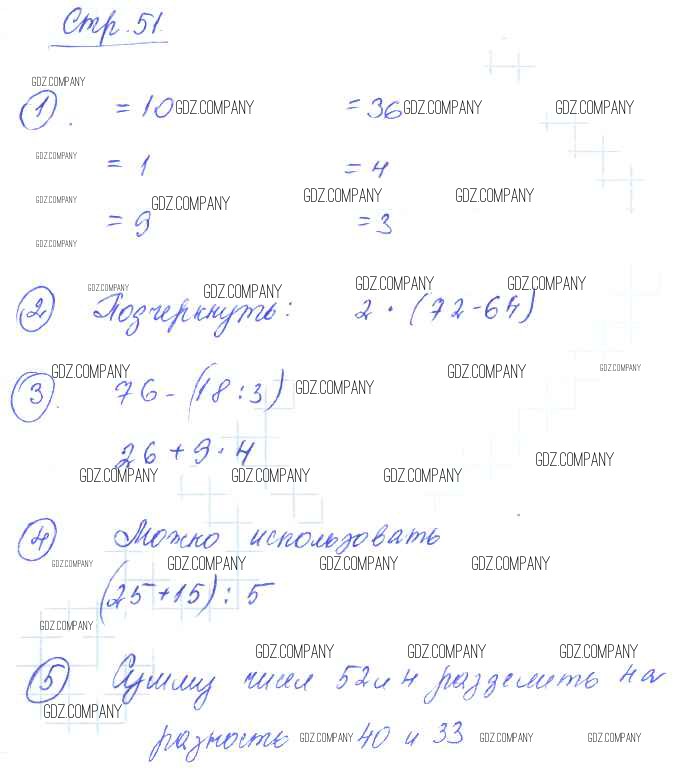 Стр. 51.
GDZ.COMPANY
1. = 10 GDZ.COMPANY = 36 GDZ.COMPANY GDZ.COMPANY
GDZ.COMPANY = 1 = 4
GDZ.COMPANY GDZ.COMPANY GDZ.COMPANY GDZ.COMPANY
= 9 = 3
GDZ.COMPANY
GDZ.COMPANY GDZ.COMPANY GDZ.COMPANY GDZ.COMPANY
2 Подчеркнуть: 2 · (72-64)
GDZ.COMPANY GDZ.COMPANY GDZ.COMPANY GDZ.COMPANY
3. 76 - (18 : 3)
26 + 9 · 4
GDZ.COMPANY
GDZ.COMPANY GDZ.COMPANY GDZ.COMPANY
4 Можно использовать
GDZ.COMPANY GDZ.COMPANY GDZ.COMPANY GDZ.COMPANY
(25+15) : 5
GDZ.COMPANY
GDZ.COMPANY GDZ.COMPANY GDZ.COMPANY
5 Сумму чисел 52 и 4 разделить на
GDZ.COMPANY
разность GDZ.COMPANY 40 и 33 GDZ.COMPANY GDZ.COMPANY